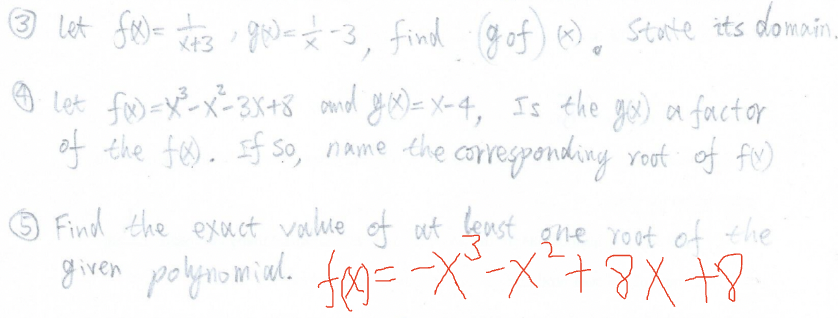 ③ let f(x) = 1/(x+3), g(x) = 1/x - 3, find (g o f)(x). State its domain.
④ let f(x) = x³-x²-3x+8 and g(x) = x-4, Is the g(x) a factor
of the f(x). If so, name the corresponding root of f(x)
⑤ Find the exact value of at least one root of the
given polynomial. f(x) = -x³-x²+8x+8